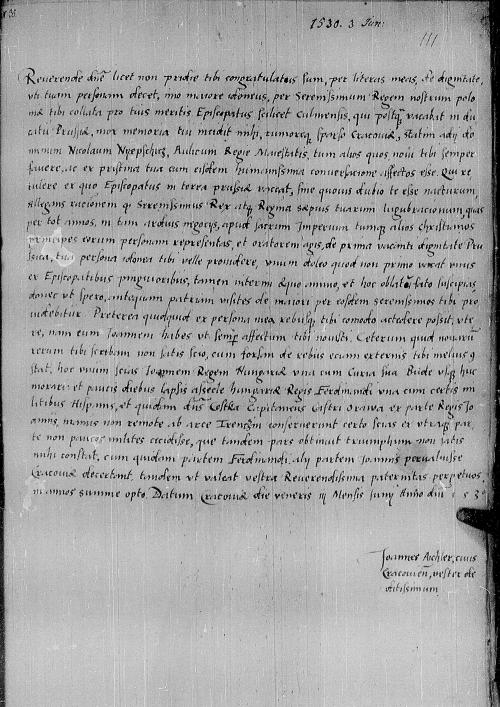 1530. 3 Iun:
111
Reverende dne licet non pridie tibi congratulatus sum, per literas meas, de dignitate,
vti tuam personam decet, imo maiore idoneus, per Serenissimum Regem nostrum polo
niæ tibi collata pro tuis meritis Episcopatus scilicet Culmensis, qui postq vacabat in du
catu Prussiæ, mox memoria tui incidit mihi, rumoreq sparso Cracoviæ, statim adij do
minum Nicolaum Nypschicz, Aulicum Regie Maiestatis, tum alios quos novi tibi semper
favere, ac ex pristina tua cum eisdem humanissima conversacione affectos esse. Qui re
tulere ex quo Episcopatus in terra prussiæ vaccat, sine quovis dubio te esse nacturum
allegans racionem q Serenissimus Rex atq Regina sæpius tuarum lugubracionum, quas
per tot annos, in tam arduis negocijs, apud sacrum Imperium tumq alios christianos
principes eorum personam representas, et oratorem agis, de prima vacanti dignitate Pru
ssica, tua persona idonea tibi velle providere, vnum doleo quod non primo vacat vnus
ex Episcopatibus pinguioribus, tamen interim æquo animo, et hoc oblatum fato suscipias
donec vt spero, antequam patriam visites de maiori per eosdem serenissimos tibi pro
videbitur. Preterea quidquid ex persona mea rebusq tibi comodo accedere possit, vte
re, nam eum Joannem habes vt semper affectum tibi novisti. Ceterum quid novarum
rerum tibi scribam non satis scio, cum forsan de rebus eciam externis tibi melius q
stat, hoc vnum scias Joannem Regem Hungariæ vna cum Curia sua Bude vsq huc
morari: et paucis diebus lapsis asseclæ hungariæ Regis Ferdinandi vna cum certis mi
litibus Hispanis, et quidam dns Costka Capitaneus Castri Orawa ex parte Regis Jo
annis, manus non remote ab arce Trenczin conseruerint certo scias ex vtraq par
te non paucos milites cecidisse, que tandem pars obtinuit triumphum non satis
mihi constat, cum quidam partem Ferdinandi, alij partem Joannis prevaluisse
Cracoviæ decertant, tandem vt valeat vestra Reverendissima paternitas perpetuos
in annos summe opto. Datum Cracoviæ die veneris iij Mensis Junij Anno dni 1530
Joannes Aichler, civis
Cracovien, vester de
ditissimum